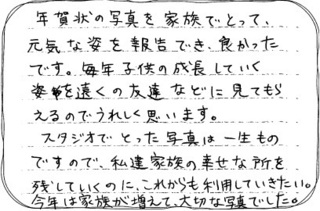 年賀状の写真を家族でとって、
元気な姿を報告でき、良かった
です。毎年子供の成長していく
姿を遠くの友達などに見てもら
えるのでうれしく思います。
スタジオでとった写真は一生もの
ですので、私達家族の幸せな所を
残していくのに、これからも利用していきたい。
今年は家族が増えて、大切な写真でした。